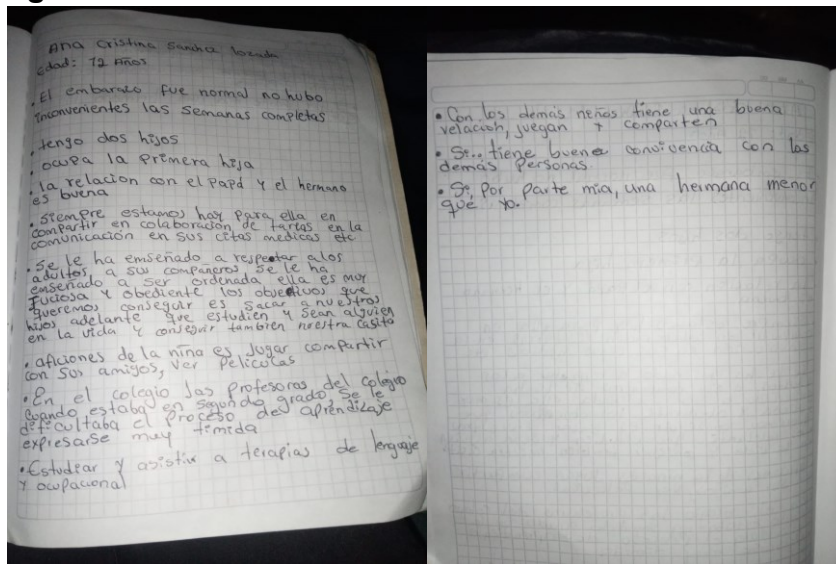 Ana Cristina Sancha lozada
edad: 12 Años
. El embarazo fue normal no hubo
inconvenientes las semanas completas
. tengo dos hijos
. ocupa la primera hija
. la relacion con el papá y el hermano
es buena
. siempre estamos hay para ella en
compartir en colaboracion de tartas en la
comunicación en sus citas medicas etc
. Se le ha emseñado a respetar alos
adultos, a sus compañeros se le ha
enseñado a ser ordenada ella es muy
juciosa y obediente los obvetivos que
queremos conseguir es sacar a nuestros
hijos adelante que estudien y sean alguien
en la vida y conseguir tambien nuestra casita
. aficiones de la niña es jugar compartir
con sus amigos, ver peliculas
. En el colegio las profesoras del colegio
cuando estaba en segundo grado, se le
dificultaba el proceso de aprendizaje
expresarse muy timida
. Estudiar y asistir a terapias de lenguaje
y ocupacional
• Con los demás neños tiene una buena
relación, juegan y comparten
• Si.. tiene buena convivencia con las
demás personas.
• Si, Por parte mia, una hermana menor
que yo.